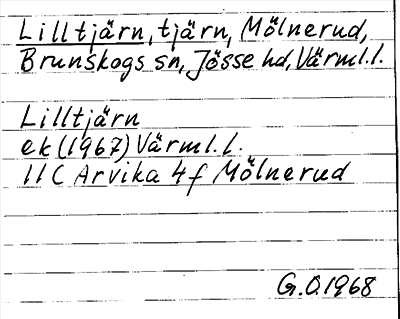 Lilltjärn, tjärn, Mölnerud,
Brunskogs sn, Jösse hd, Värml.l.
Lilltjärn
ek (1967) Värml.l.
11C Arvika 4f Mölnerud
G.O.1968